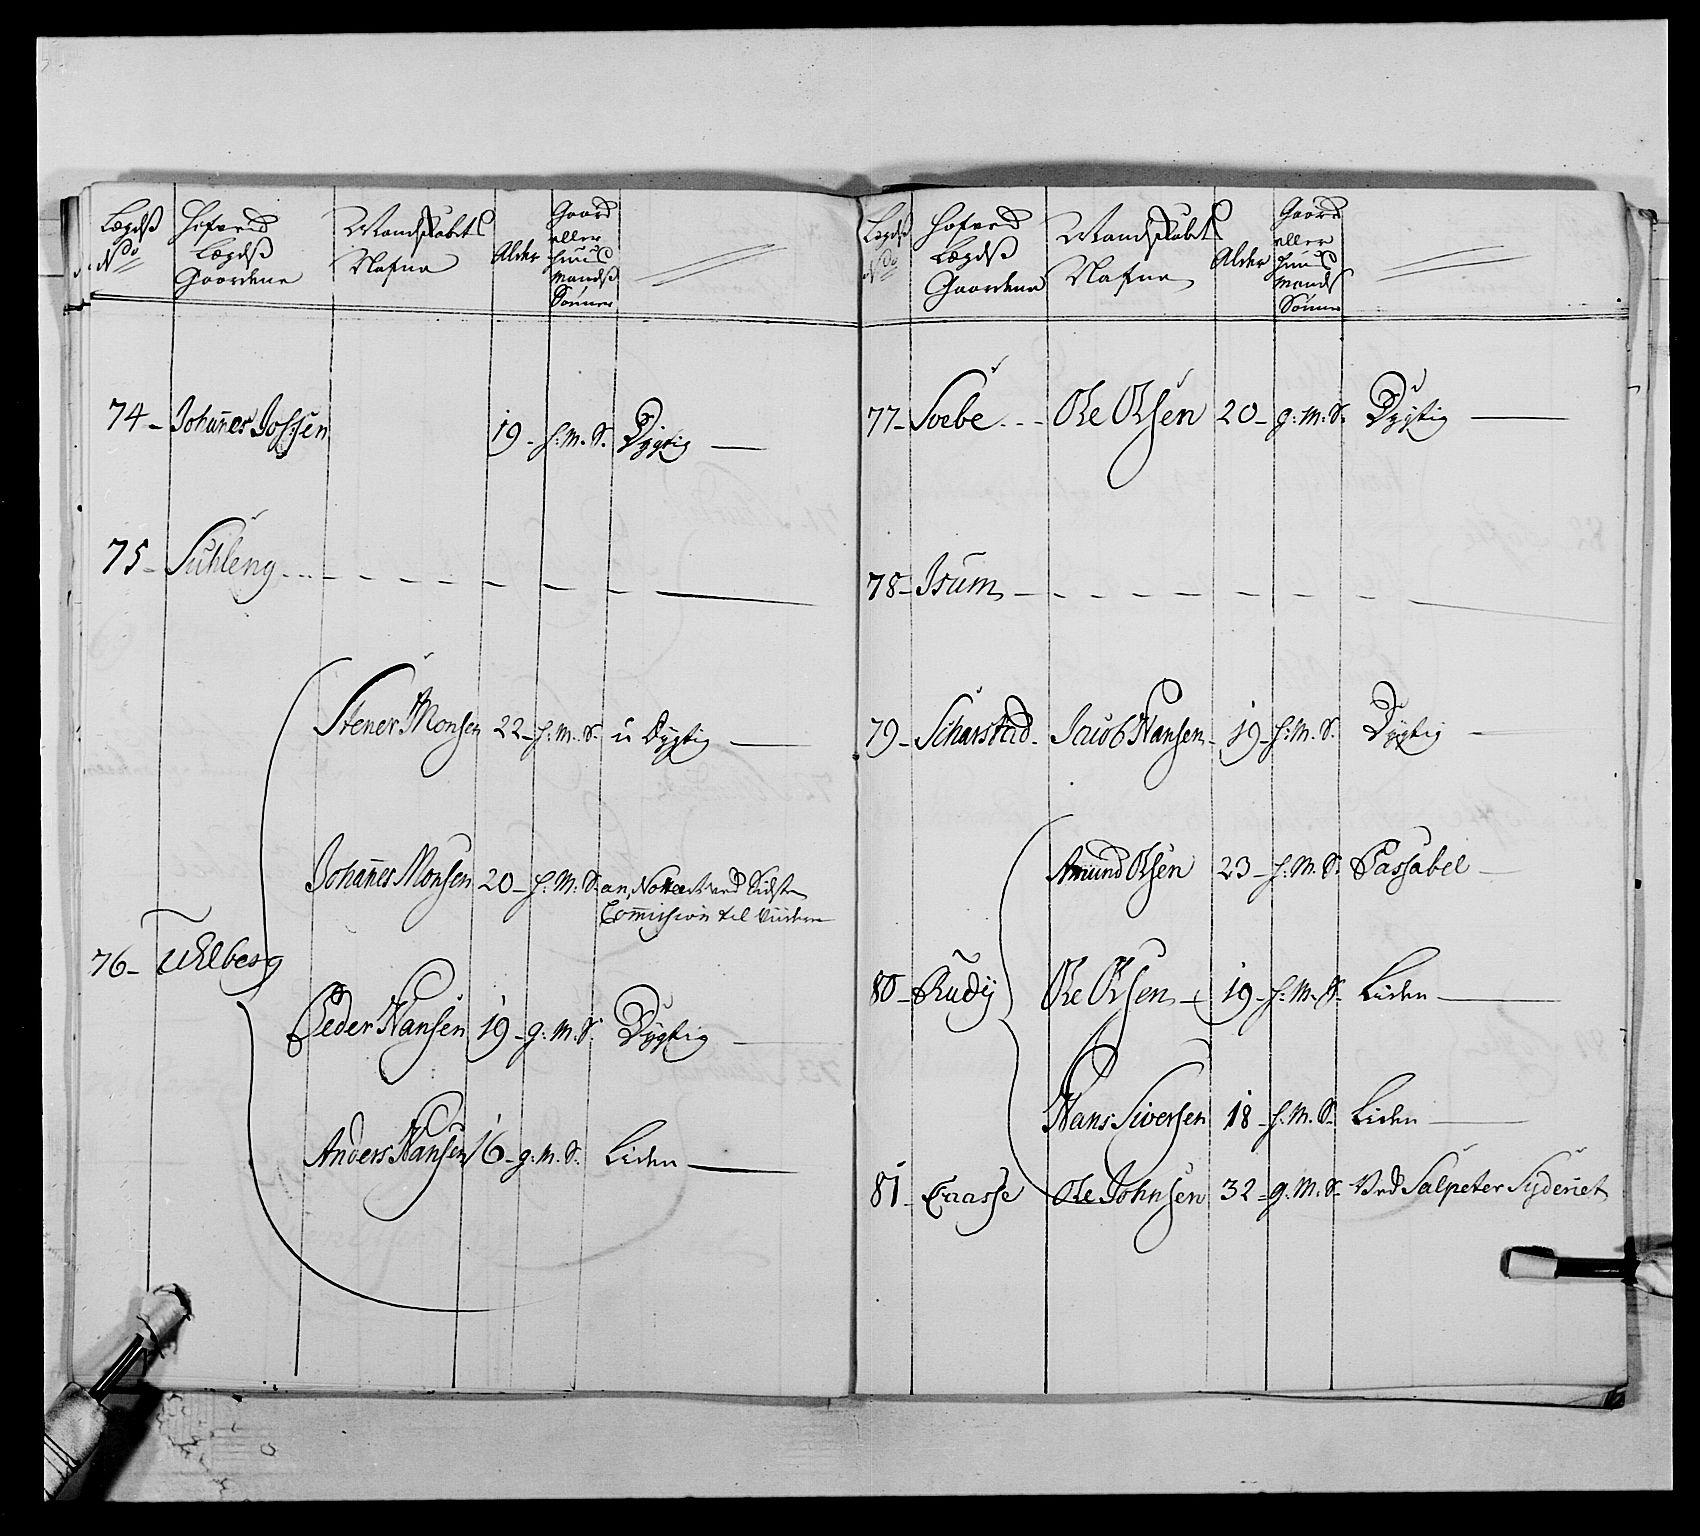 Lægdß
No
Hofved
Lægdß
Gaardene
Mandskabets
Nafne
Alder
Gaard
eller
Huus
Mandß
Sønner
74 - Johannes Jossen 19 - h. M. S. Dygtig
75 - Suhleng
Stener Monsen 22 - h. M. S. u Dygtig
Johannes Monsen 20 - h. M. S. an, Noteert ved Sidste
Commission til
76 - Welberg
Peder Hansen 19 - g. M. S. Dygtig
Anders Hansen 16 - g. M. S. Liden
Lægdß
No
Hofved
Lægdß
Gaardene
Mandskabets
Nafne
Alder
Gaard
eller
Huus
Mands
Sønner
77 - Soebe - Ole Olsen 20 - g. M. S. Dygtig
78 - Isum
79 - Scharstad - Jacob Hansen 19 - h. M. S. Dygtig
Amund Olsen 23 - h. M. S. Passabel
80 - Rudÿ Ole Olsen 19 - h. M. S. Liden
Hans Siversen 18 - h. M. S. Liden
81 - Faasse Ole Johnsen 32 - g. M. S. Ved Salpeter Syderiet